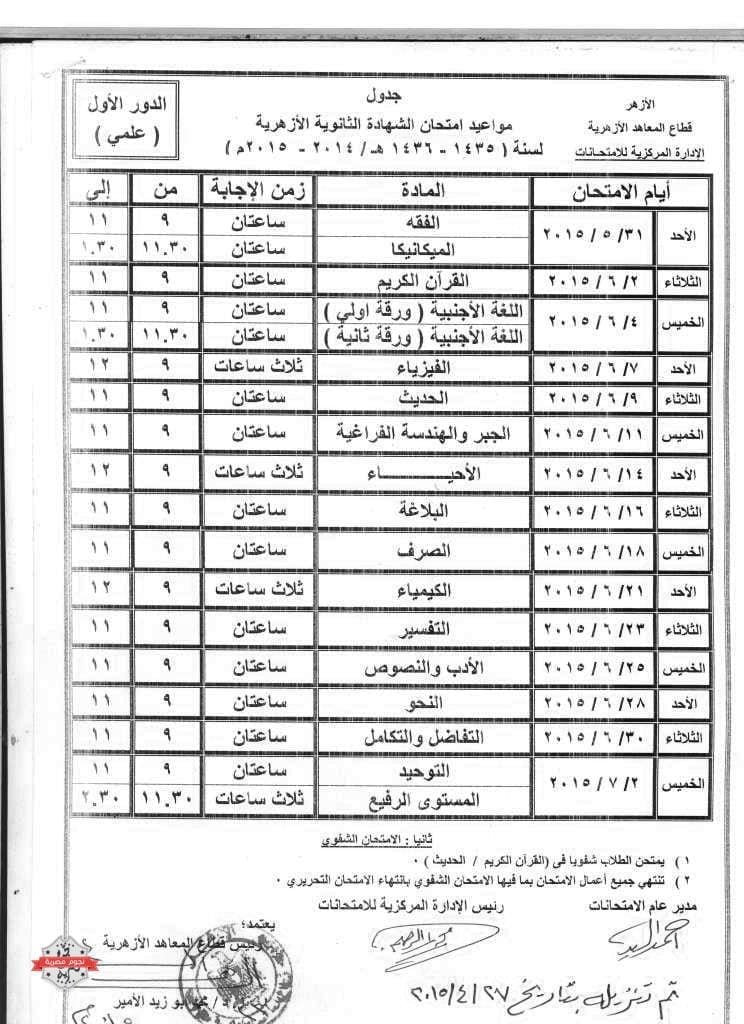 الأزهر
قطاع المعاهد الأزهرية
الإدارة المركزية للامتحانات
جدول
مواعيد امتحان الشهادة الثانوية الأزهرية
لسنة ( ١٤٣٥ - ١٤٣٦ هـ / ٢٠١٤ - ٢٠١٥م )
الدور الأول
( علمي )
أيام الامتحان المادة زمن الإجابة من إلى
الأحد ٣١/ ٥ / ٢٠١٥ الفقه ساعتان ٩ ١١
الميكانيكا ساعتان ١١.٣٠ ١.٣٠
الثلاثاء ٢/ ٦ / ٢٠١٥ القرآن الكريم ساعتان ٩ ١١
الخميس ٤/ ٦ / ٢٠١٥ اللغة الأجنبية ( ورقة اولي ) ساعتان ٩ ١١
اللغة الأجنبية ( ورقة ثانية ) ساعتان ١١.٣٠ ١.٣٠
الأحد ٧/ ٦ / ٢٠١٥ الفيزياء ثلاث ساعات ٩ ١٢
الثلاثاء ٩/ ٦ / ٢٠١٥ الحديث ساعتان ٩ ١١
الخميس ١١/ ٦ / ٢٠١٥ الجبر والهندسة الفراغية ساعتان ٩ ١١
الأحد ١٤/ ٦ / ٢٠١٥ الأحيـــــــاء ثلاث ساعات ٩ ١٢
الثلاثاء ١٦/ ٦ / ٢٠١٥ البلاغة ساعتان ٩ ١١
الخميس ١٨/ ٦ / ٢٠١٥ الصرف ساعتان ٩ ١١
الأحد ٢١/ ٦ / ٢٠١٥ الكيمياء ثلاث ساعات ٩ ١٢
الثلاثاء ٢٣/ ٦ / ٢٠١٥ التفسير ساعتان ٩ ١١
الخميس ٢٥/ ٦ / ٢٠١٥ الأدب والنصوص ساعتان ٩ ١١
الأحد ٢٨/ ٦ / ٢٠١٥ النحو ساعتان ٩ ١١
الثلاثاء ٣٠/ ٦ / ٢٠١٥ التفاضل والتكامل ساعتان ٩ ١١
الخميس ٢/ ٧ / ٢٠١٥ التوحيد ساعتان ٩ ١١
المستوى الرفيع ثلاث ساعات ١١.٣٠ ٢.٣٠
ثانيا : الامتحان الشفوي
١ ) يمتحن الطلاب شفويا فى (القرآن الكريم / الحديث ) ٠
٢ ) تنتهي جميع أعمال الامتحان بما فيها الامتحان الشفوي بانتهاء الامتحان التحريري ٠
مدير عام الامتحانات
رئيس الإدارة المركزية للامتحانات
يعتمد؛
رئيس قطاع المعاهد الأزهرية
أبو زيد الأمير
تم تنزيله بتاريخ ٢٠١٥/٤/٢٧
نجوم مصرية